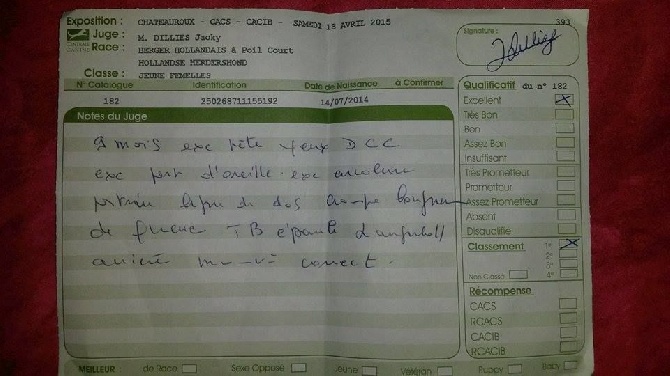 Exposition : CHATEAUROUX - CACS - CACIB - SAMEDI 18 AVRIL 2015 393
Juge : M. DILLIES Jacky Signature :
Race : BERGER HOLLANDAIS à Poil Court
HOLLANDSE HERDERSHOND
Classe : JEUNE FEMELLES
N° Catalogue Identification Date de Naissance à Confirmer
182 250268711155192 14/07/2014
Notes du Juge
9 mois exc tête yeux D C C
exc port d'oreille exc
ligne de dos
de TB épaule
correct.
Qualificatif du n° 182
Excellent X
Très Bon
Bon
Assez Bon
Insuffisant
Très Prometteur
Prometteur
Assez Prometteur
Absent
Disqualifié
Classement 1er X
2e
3e
Non Classé 4e
Récompense
CACS
RCACS
CACIB
RCACIB
MEILLEUR : de Race Sexe Opposé Jeune Vétéran Puppy Baby